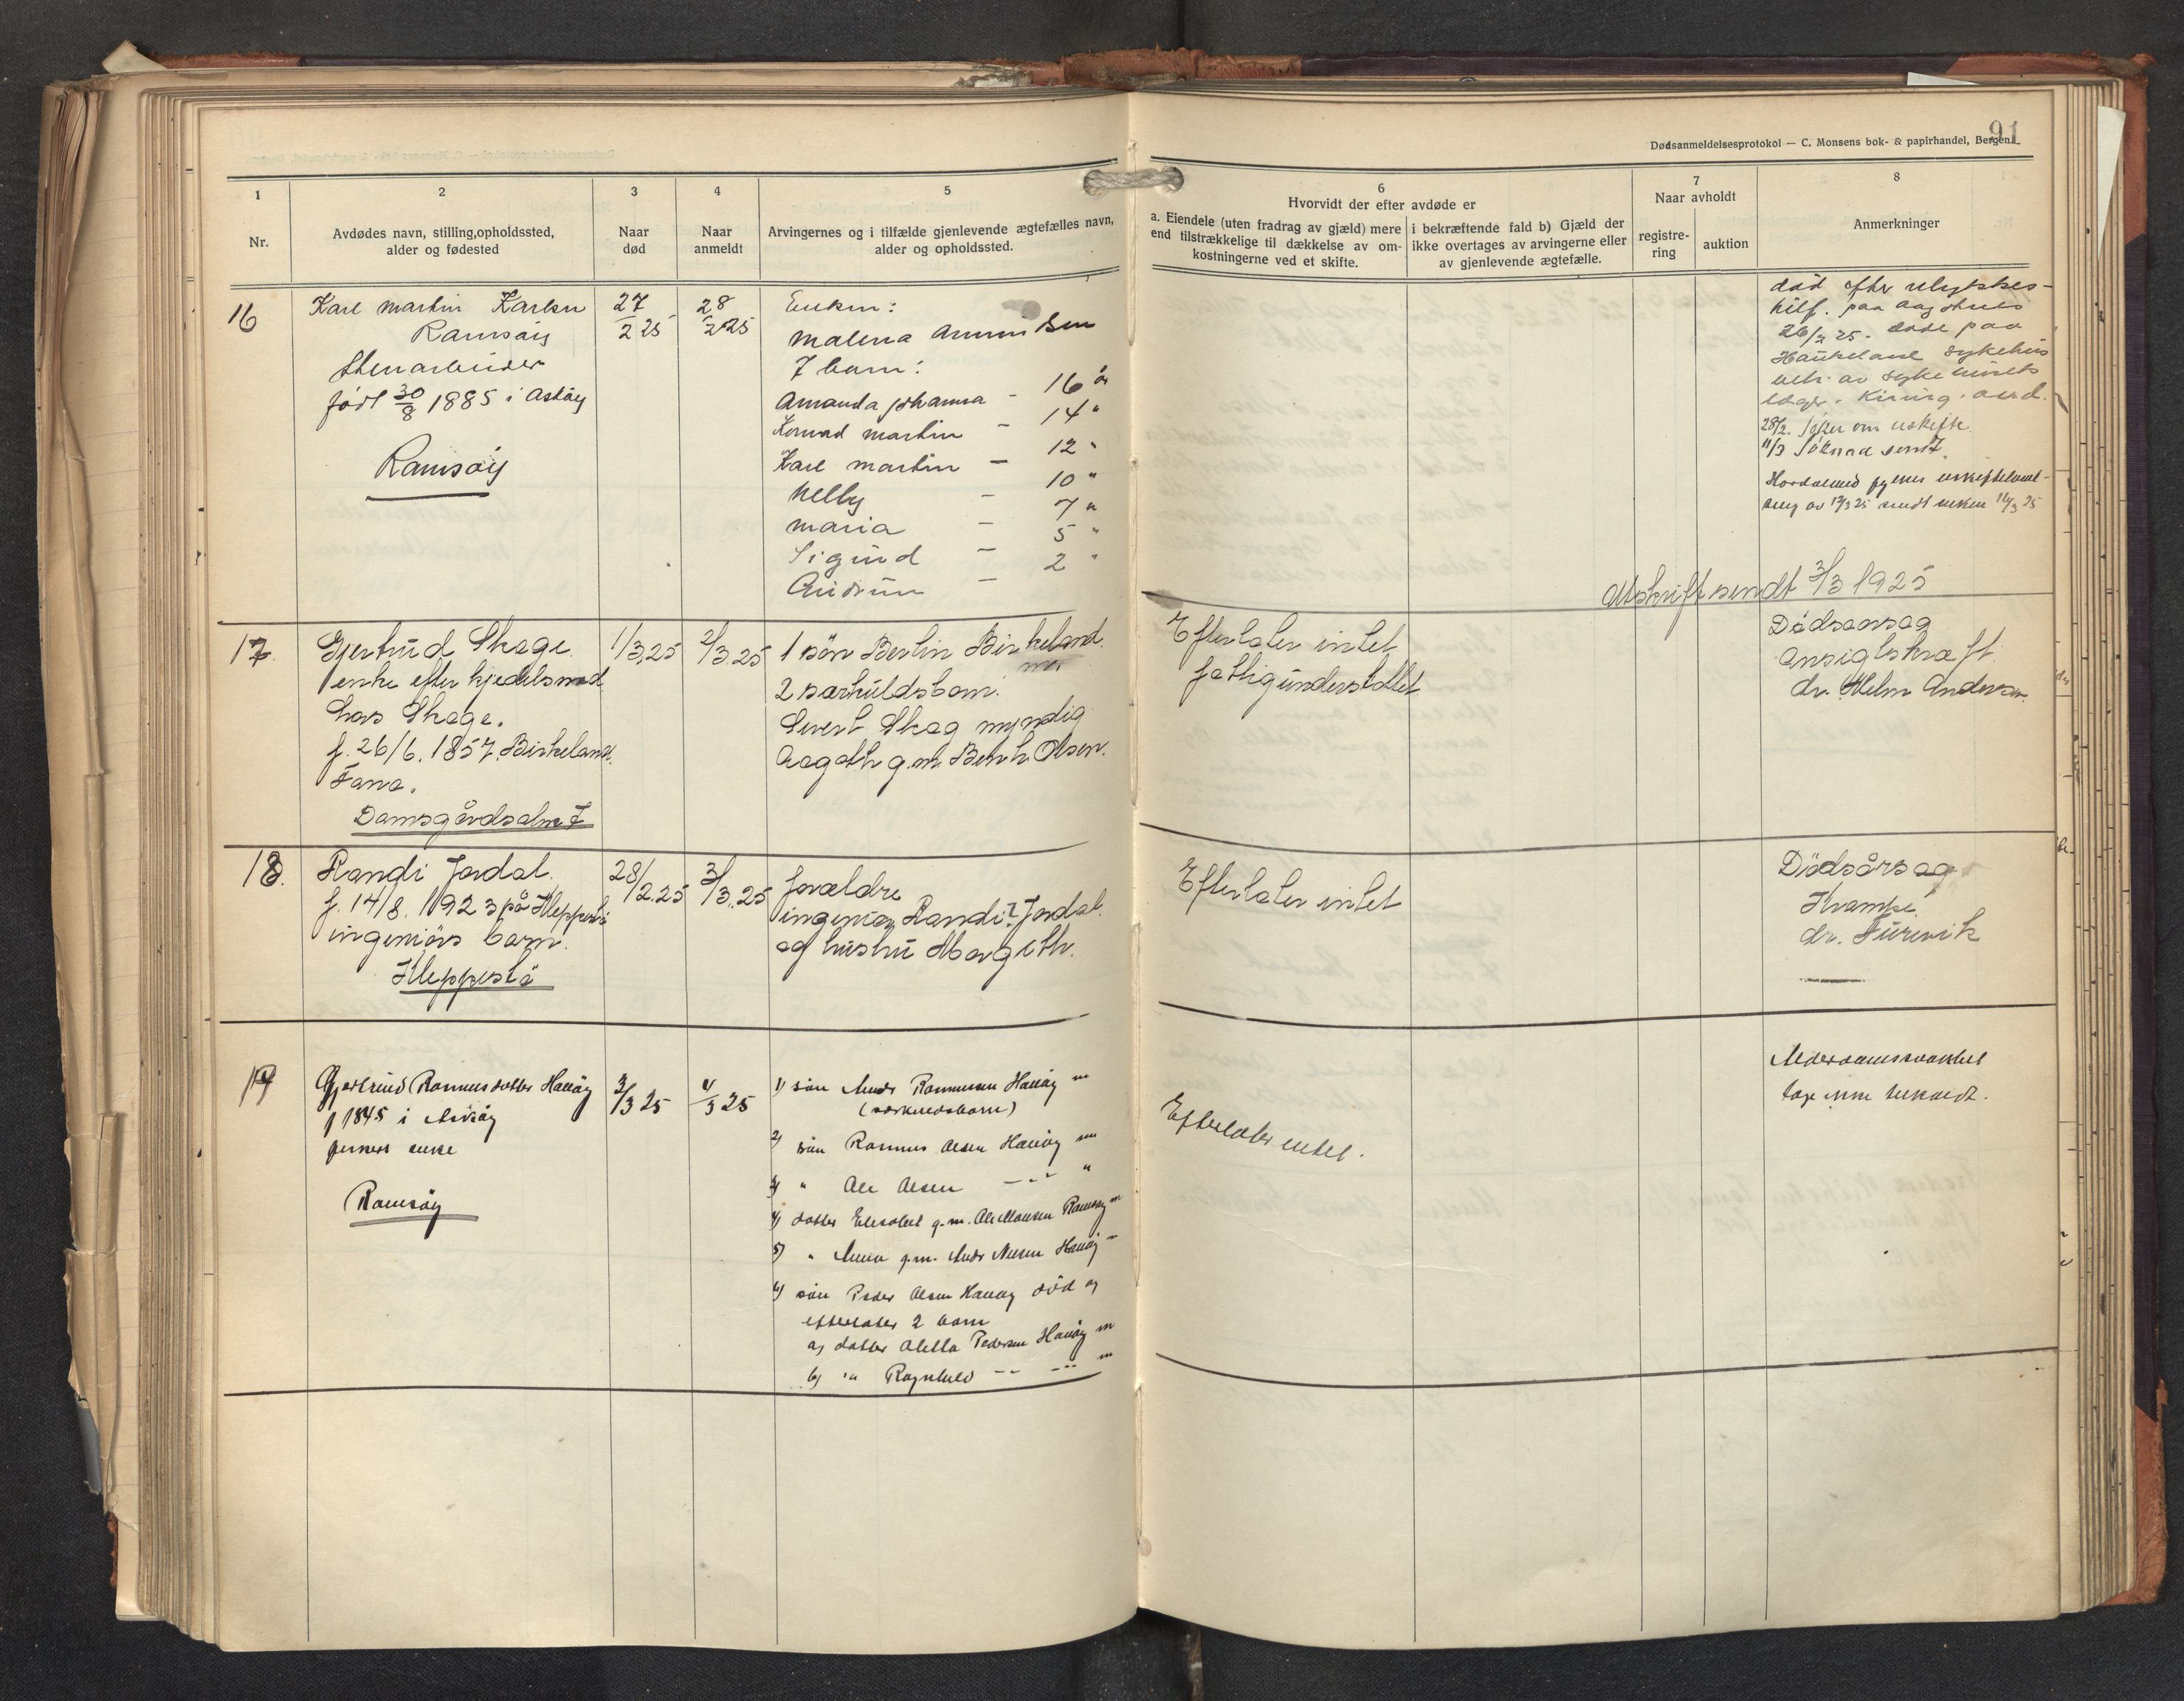 91
Dødsanmeldelsesprotokol — C. Monsens bok- & papirhandel, Bergen.
1
Nr.
2
Avdødes navn, stilling, opholdssted,
alder og fødested
3
Naar
død
4
Naar
anmeldt
5
Arvingernes og i tilfælde gjenlevende ægtefælles navn,
alder og opholdssted.
6
Hvorvidt der efter avdøde er
a. Eiendele (uten fradrag av gjæld) mere
end tilstrækkelige til dækkelse av om-
kostningerne ved et skifte.
i bekræftende fald b) Gjæld der
ikke overtages av arvingerne eller
av gjenlevende ægtefælle.
7
Naar avholdt
registre-
ring
auktion
8
Anmerkninger
16
Karl Martin Karlsen
Ramsöy
Stenarbeider
født 30/8 1885 i Askøy
Ramsöy
27/2 25
28/2 25
Enken:
Malena
7 barn:
Amanda Johanna - 16 år
Konrad Martin - 14 "
Karl Martin - 12 "
Nelly - 10 "
Maria - 7 "
Sigurd - 5 "
Gudrun - 2 "
død efter ulykkes-
tilf. paa
26/2 25. døde paa
Haukeland sykehus
sykehusets
læge. Kirurg. avd.
28/2. søker om uskifte.
11/3 Søknad sendt.
Hordaland fylkes uskiftebevil-
25 sendt enken 25
Avskrift sendt 3/3 1925
17.
Gjertrud Skage.
enke efter kjedelsmed
Lars Skage.
f. 26/6. 1857. Birkeland.
Fana.
Damsgårdsalm
1/3.25
2/3.25
1 søn Berlin Birkeland.
2 særkuldsbarn.
Severt Skag myndig
Aagoth g.m. Bernh. Olsen.
Efterlater intet
fattigunderstøttet
Dødsaarsag
Ansigtskræft
dr. Helm Andersen.
18.
Randi Jordal.
f. 14/8. 1923 på Kleppestö
ingeniörs barn.
Kleppestö
28/2.25
3/3.25
forældre
ingeniør Randi? Jordal.
og hustru Margith.
Efterlater intet
Dödsårsag
Krampe.
dr. Furevik
19
Gjertrud Rasmusdatter Hanöy
f 1845 i Askøy
fiskers enke
Ramsöy
3/3 25
4/3 25
1) søn Andr Rasmussen Hanöy m
(særkuldsbarn)
2) søn Rasmus Olsen Hanöy m
3) " Ole Olsen - " - "
4) datter Elisabet g.m. Ole Monsen Ramsöy m
5) " Anna g.m. Andr Nilsen Hanöy
6) søn Peder Olsen Hanöy død og
efterlater 2 barn
a) datter Oletta Pedersen Hanöy m
b) " Ragnhild - " - m
Efterlater intet.
Alderdomssvakhet
læge ikke